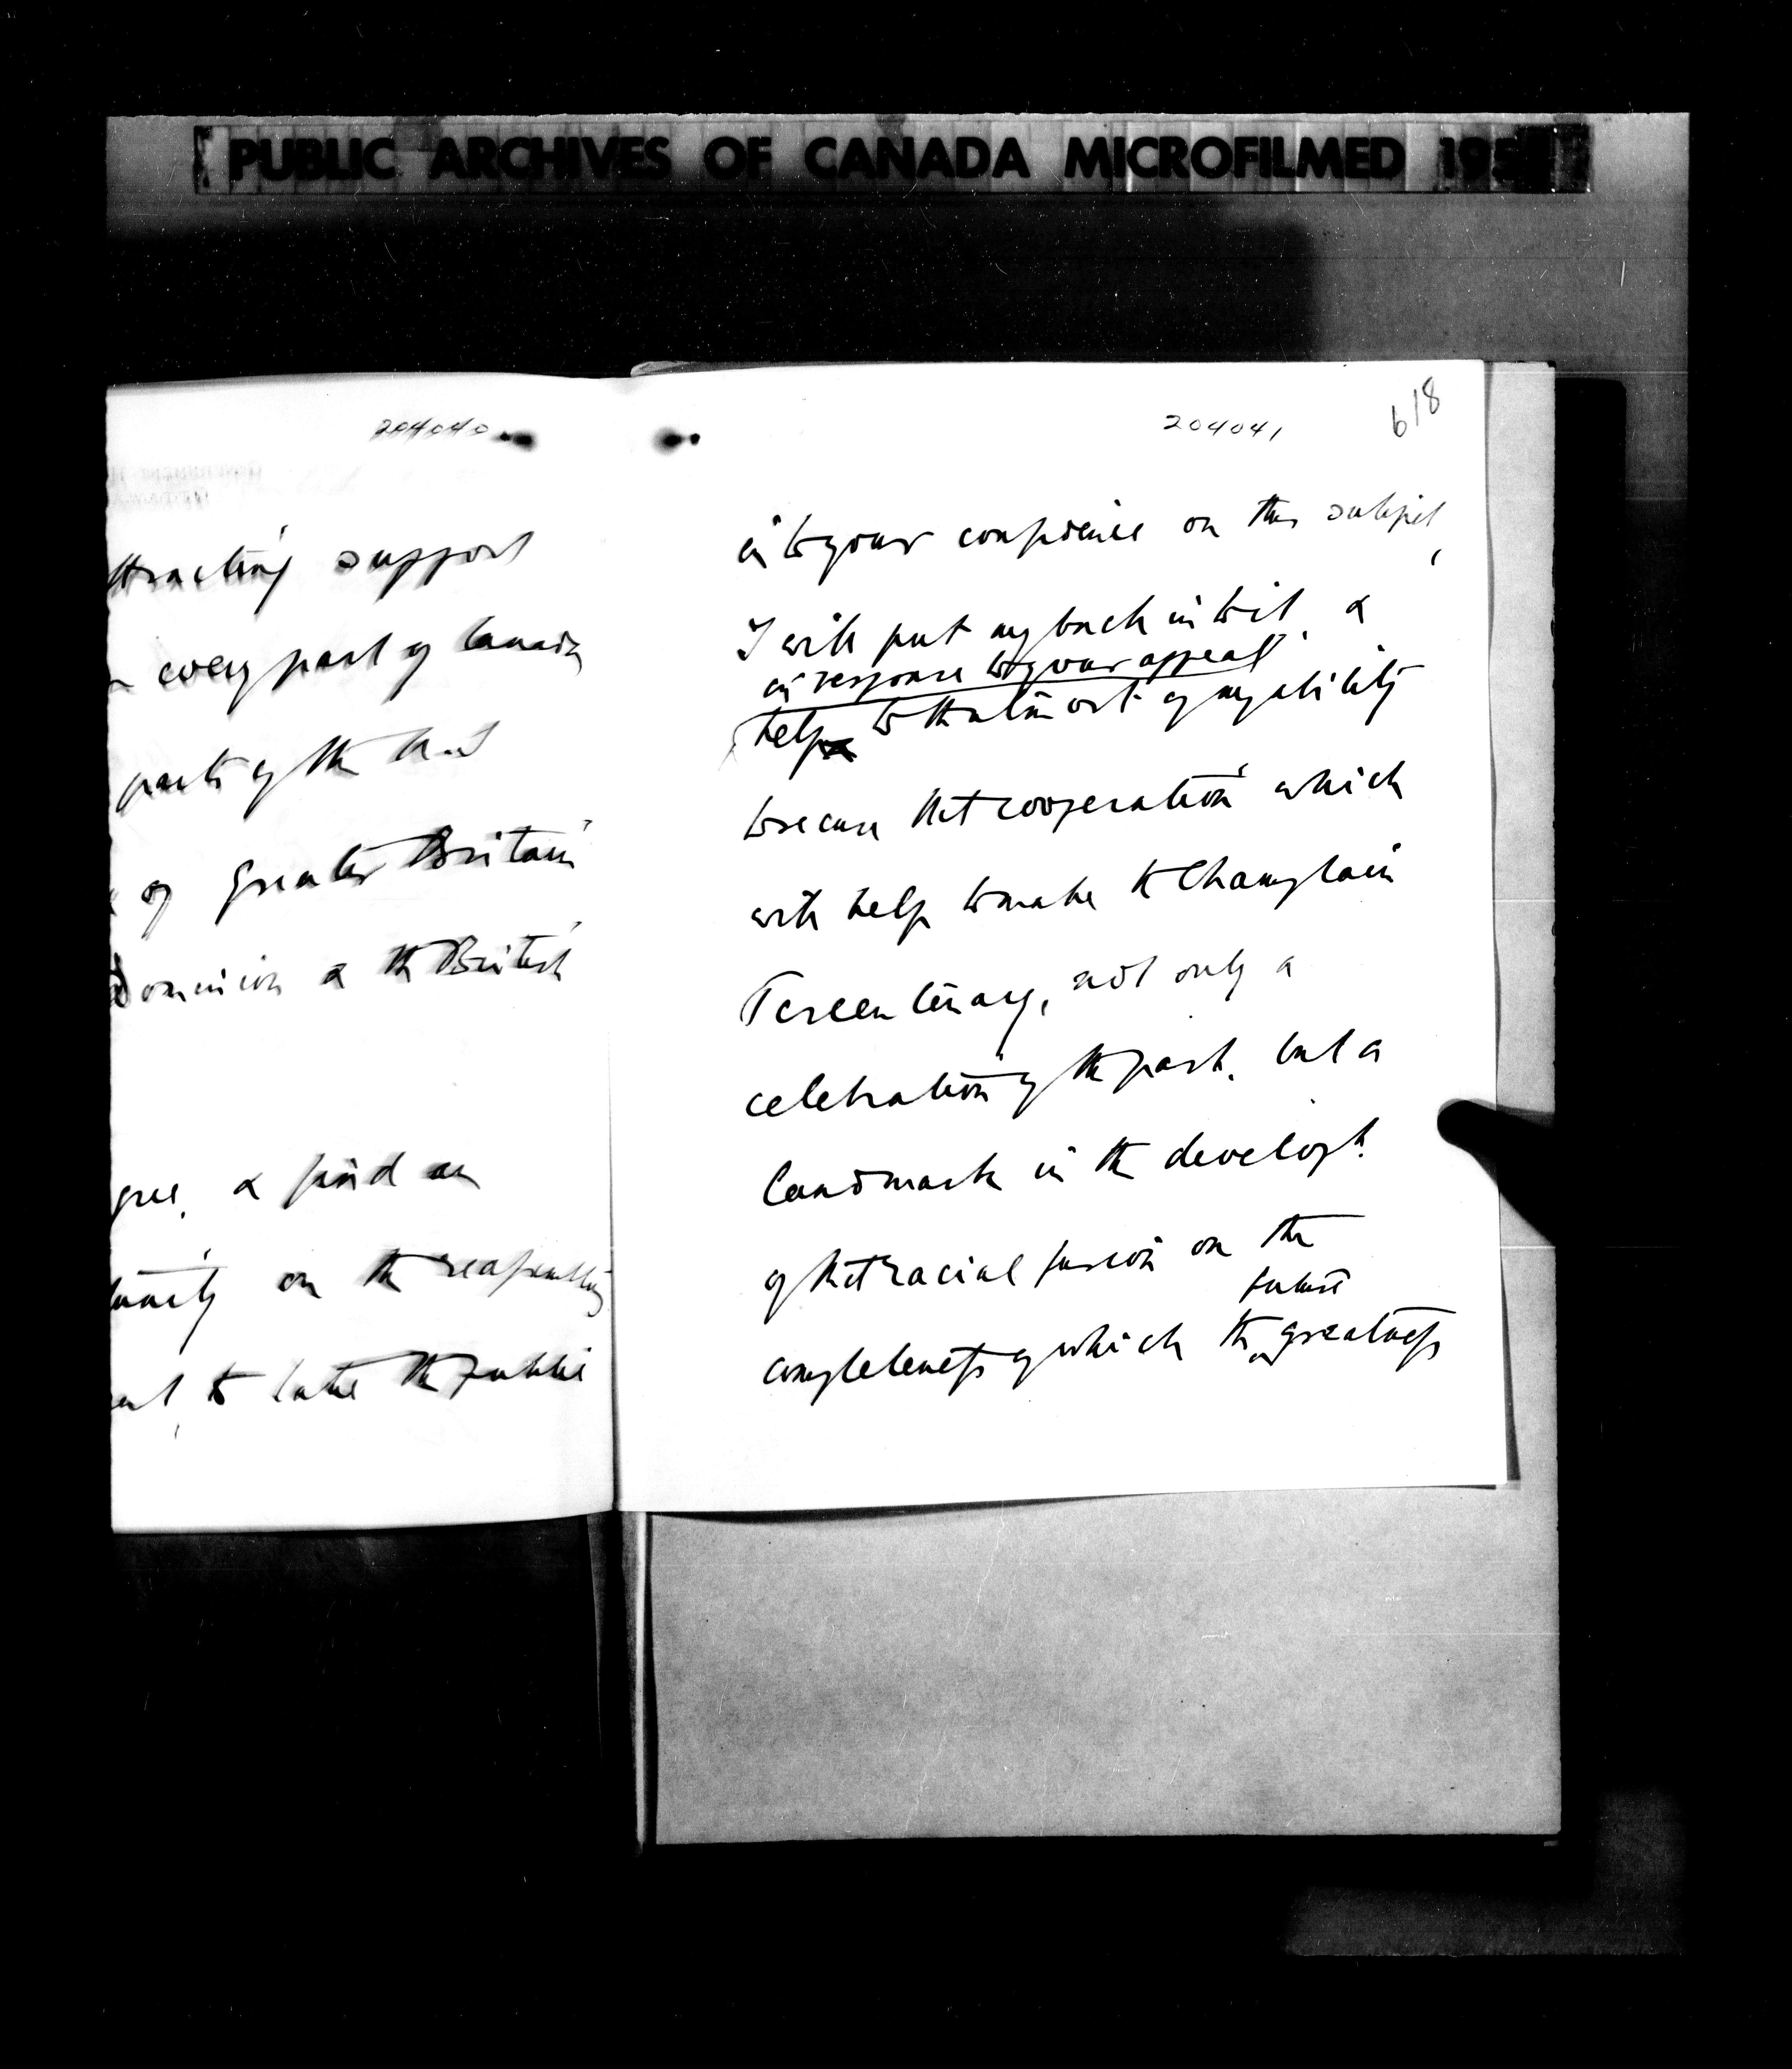 PUBLIC ARCHIVES OF CANADA MICROFILMED 195
204040
ttracting support
every part of Canada
parts of the
of Greater Britain
Dominion & the British
gree, & find an
tunity on the reassembling
to take the public
204041
618
into your confidence on this subject,
I will put my back into it, &
in response to your appeal
help to the utmost of my ability
to secure that cooperation which
will help to make the Champlain
Tercentenary, not only a
celebration of the past, but a
landmark in the developt.
of that racial fusion on the
future
completeness of which the greatness